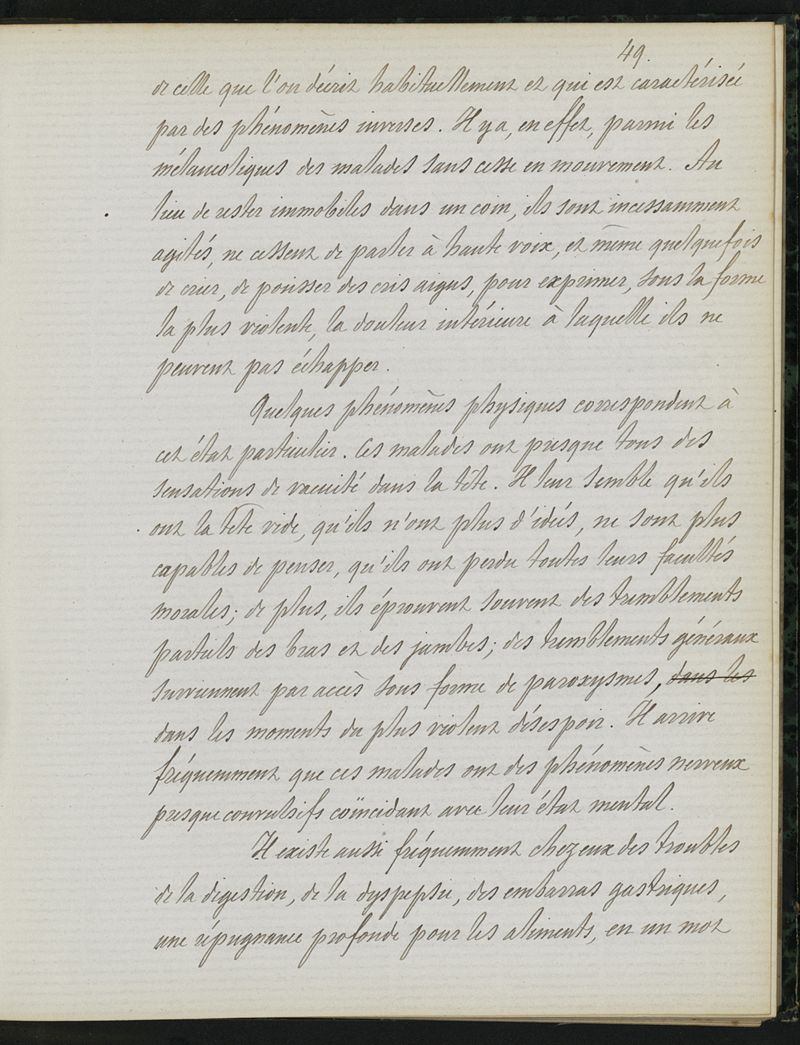 49.
de celle que l'on décrit habituellement et qui est caractérisée
par des phénomènes inverses. Il y a, en effet, parmi les
mélancoliques des malades sans cesse en mouvement. Au
lieu de rester immobiles dans un coin, ils sont incessamment
agités, ne cessent de parler à haute voix, et même quelquefois
de crier, de pousser des cris aigus, pour exprimer, sous la forme
la plus violente, la douleur intérieure à laquelle ils ne
peuvent pas échapper.
Quelques phénomènes physiques correspondent à
cet état particulier. Ces malades ont presque tous des
sensations de vacuité dans la tête. Il leur semble qu'ils
ont la tête vide, qu'ils n'ont plus d'idées, ne sont plus
capables de penser, qu'ils ont perdu toutes leurs facultés
morales; de plus, ils éprouvent souvent des tremblements
partiels des bras et des jambes; des tremblements généraux
surviennent par accès sous forme de paroxysmes, dans les
dans les moments du plus violent désespoir. Il arrive
fréquemment que ces malades ont des phénomènes nerveux
presque convulsifs coïncidant avec leur état mental.
Il existe aussi fréquemment chez eux des troubles
de la digestion, de la dyspepsie, des embarras gastriques,
une répugnance profonde pour les aliments, en un mot